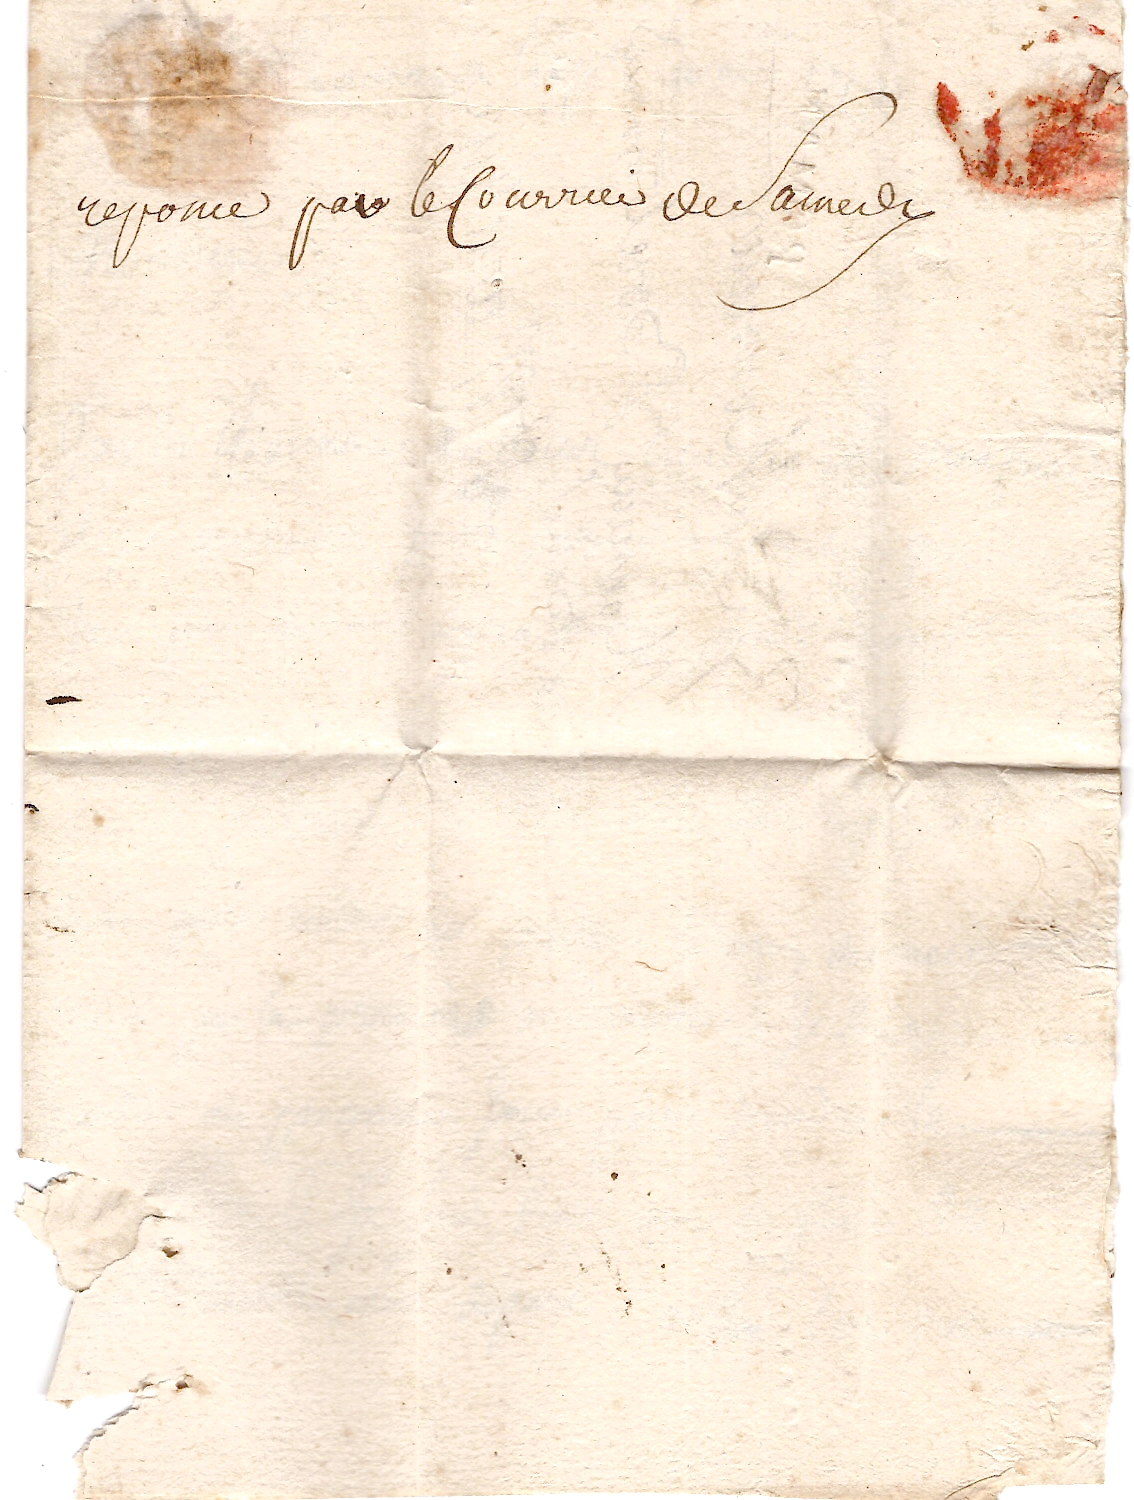 reponce par le Courrier de Samedy